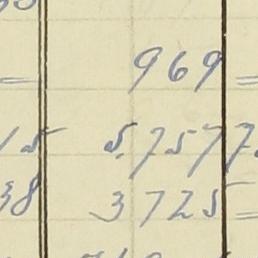 969
15 5.7577
38 3725